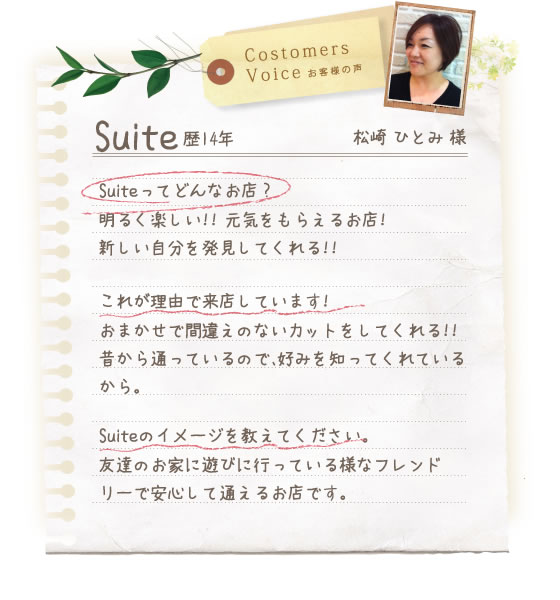 Costomers
Voice お客様の声
Suite 歴14年 松崎 ひとみ 様
Suiteってどんなお店？
明るく楽しい!! 元気をもらえるお店!
新しい自分を発見してくれる!!
これが理由で来店しています!
おまかせで間違えのないカットをしてくれる!!
昔から通っているので、好みを知ってくれている
から。
Suiteのイメージを教えてください。
友達のお家に遊びに行っている様なフレンド
リーで安心して通えるお店です。